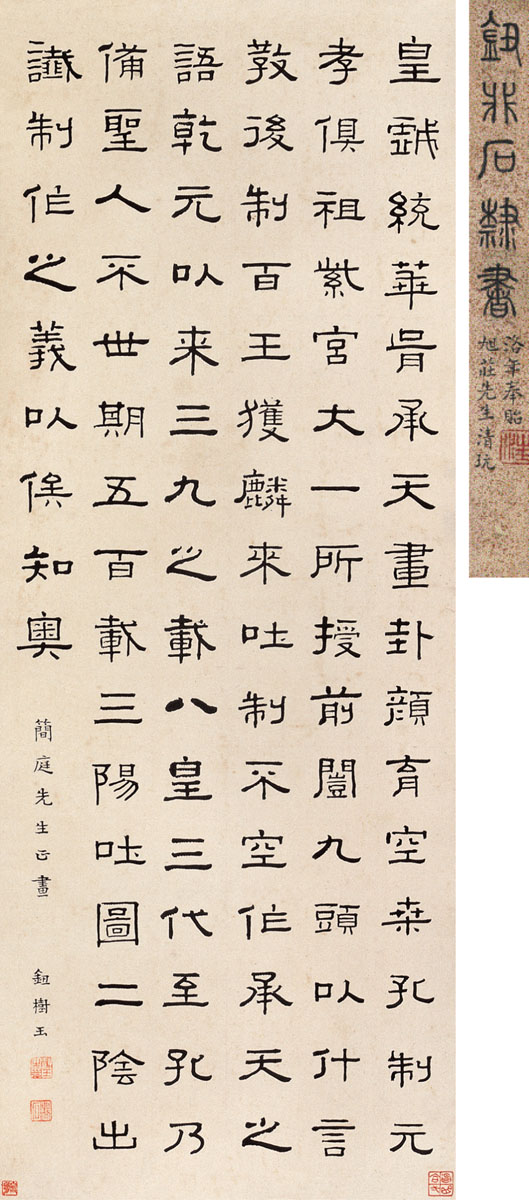 鈕非石隸書
洛年奉貽
旭莊先生清玩
皇戲統華胥承天畫卦顏育空桒孔制元
孝俱祖紫宮大一所授前闓九頭以什言
敎後制百王獲麟來吐制不空作承天之
語乾元以来三九之載八皇三代至孔乃
備聖人不世期五百載三陽吐圖二陰出
讖制作之義以俟知奧
簡庭先生正畫
鈕樹玉